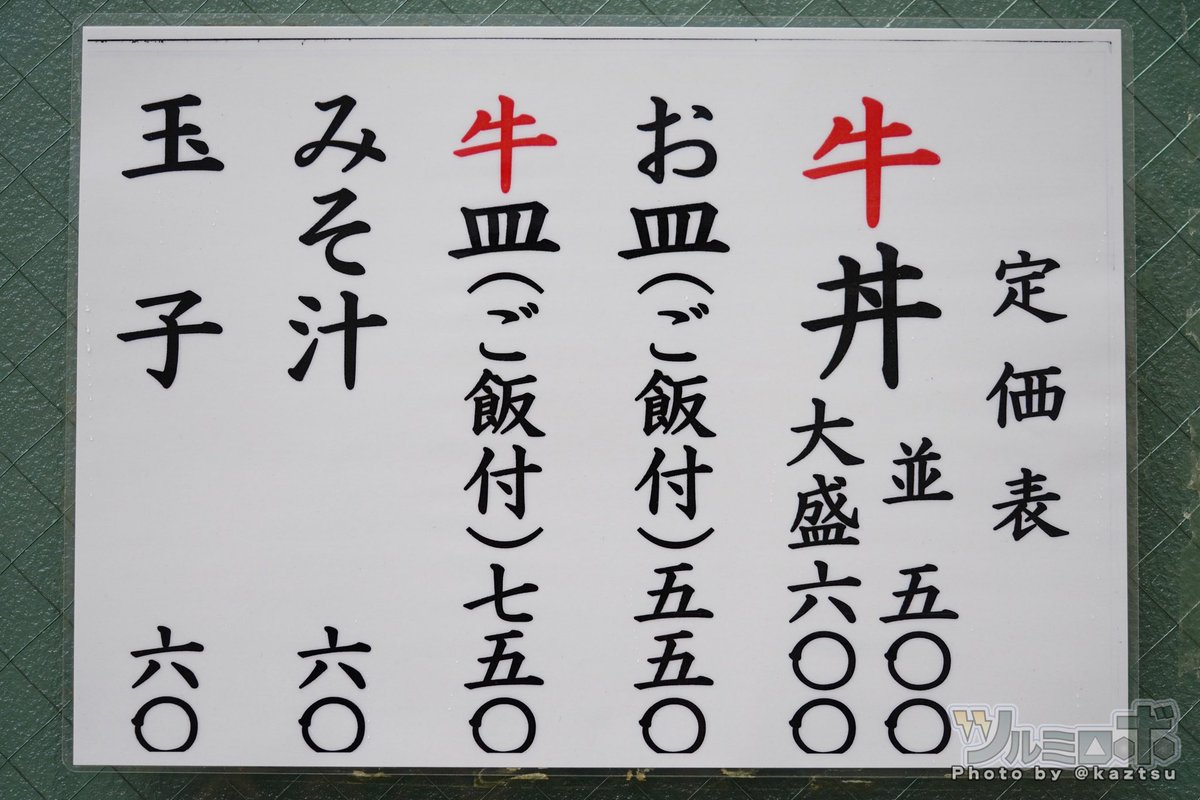 定価表
牛丼
並 五〇〇
大盛六〇〇
お皿(ご飯付)五五〇
牛皿(ご飯付)七五〇
みそ汁 六〇
玉子 六〇
ツルミロボ
Photo by @kaztsu